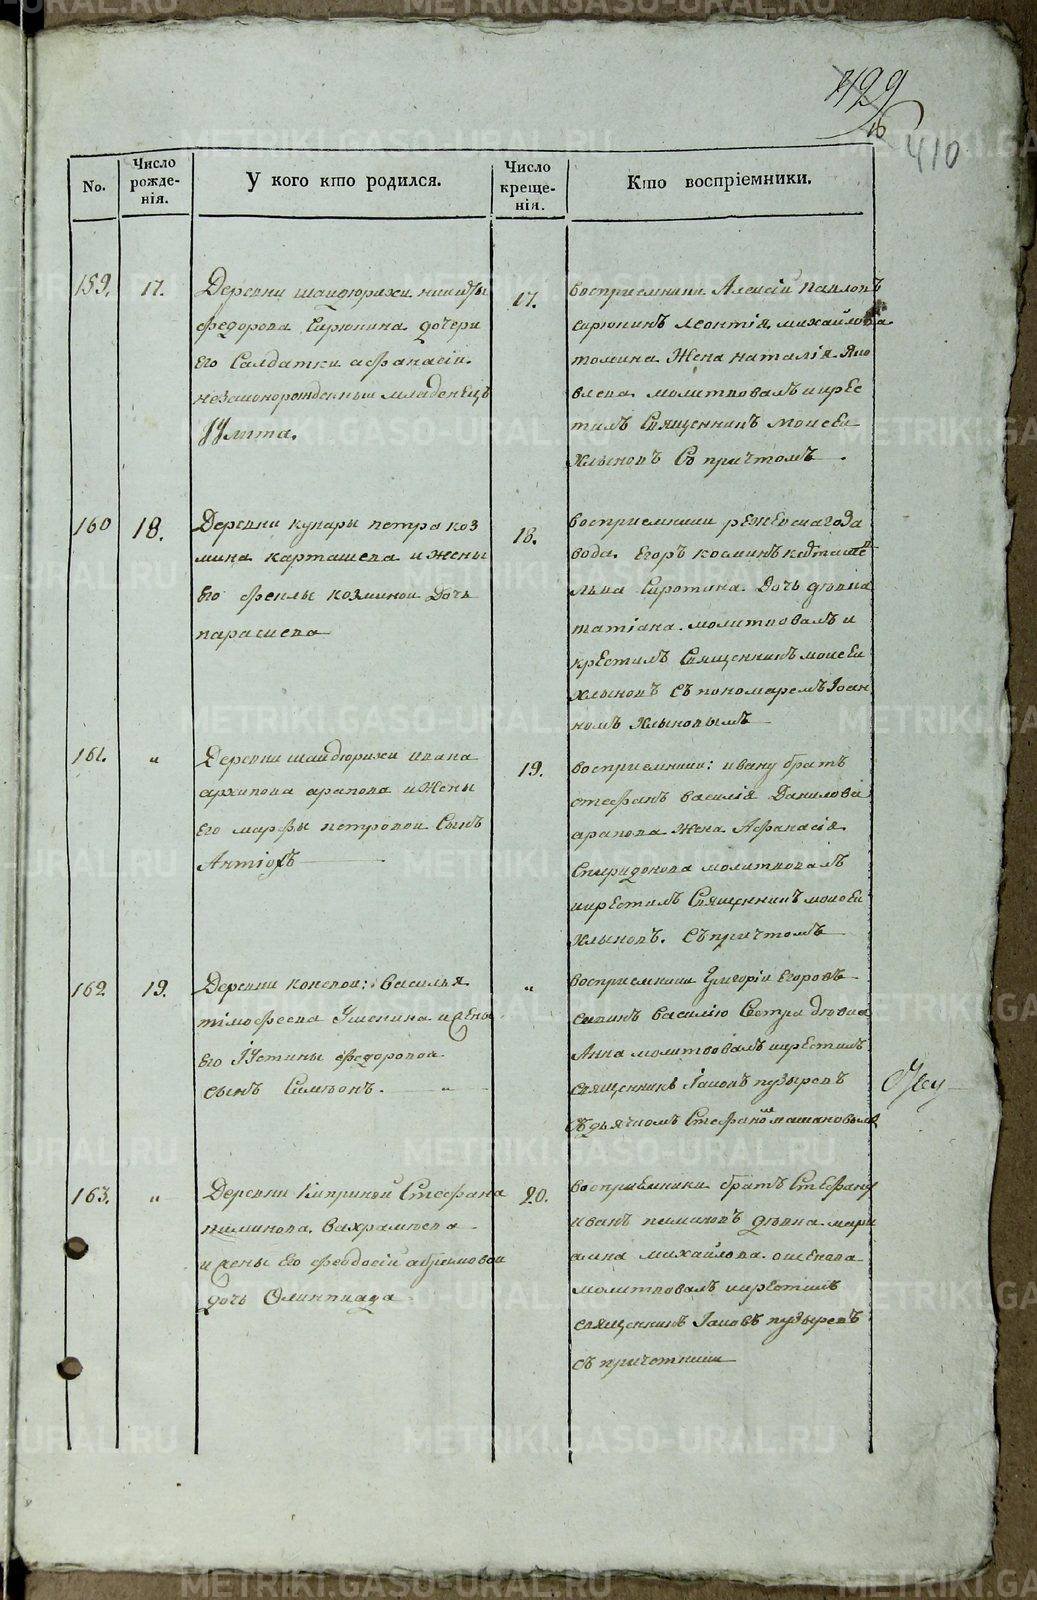 429
16
410
No.
Число рожде-нія.
У кого кто родился.
Число креще-нія.
Кто воспріемники.
159.
17.
Деревни шайдюрихи никиты
федорова Сирюкина дочери
его Салдатки афанасіи
незаконорожденный младенецъ
Іулита.
17.
восприемники Алексій Павловъ
сирюкинъ леонтія михайлова
томина жена наталія Яко
влева молитвовалъ и крес
тилъ Священникъ моисеи
хлыновъ Съ причтомъ
160
18.
Деревни кунары петра коз
мина карташева и жены
его феклы козминои дочь
парасиева
18.
восприемники режевскаго за
вода Егоръ косминъ
Сиротина дочь девка
татіана. молитвовалъ и
крестилъ Священникъ моисеи
хлыновъ съ пономаремъ Іоан
номъ хлыновымъ
161.
"
Деревни шайдюрихи ивана
архипова арапова и жены
его марфы петровои сынъ
Антіохъ
19.
восприемники: ивану братъ
стефанъ василія Данилова
арапова жена Афанасія
Спиридонова молитвовалъ
и крестилъ Священникъ моисеи
хлыновъ. Съ причтомъ
162
19.
Деревни коневои: василья
тімофеева и жены
его Іустины федоровои
сынъ Симеонъ. "
"
восприемники Григорій Егоровъ
василію Сестра девка
Анна молитвовалъ и крестилъ
священникъ Іаковъ пузыревъ
съ дьячкомъ Стефаномъ
163.
"
Деревни Киприной Стефана
пиминова вахрамеева
и жены его феодосіи
дочь Олимпиада
20.
восприемники братъ Стефану
иванъ пиминовъ девка мари
амна михайлова
молитвовалъ и крестилъ
священникъ Іаковъ пузыревъ
съ причетники
METRIKI.GASO-URAL.RU